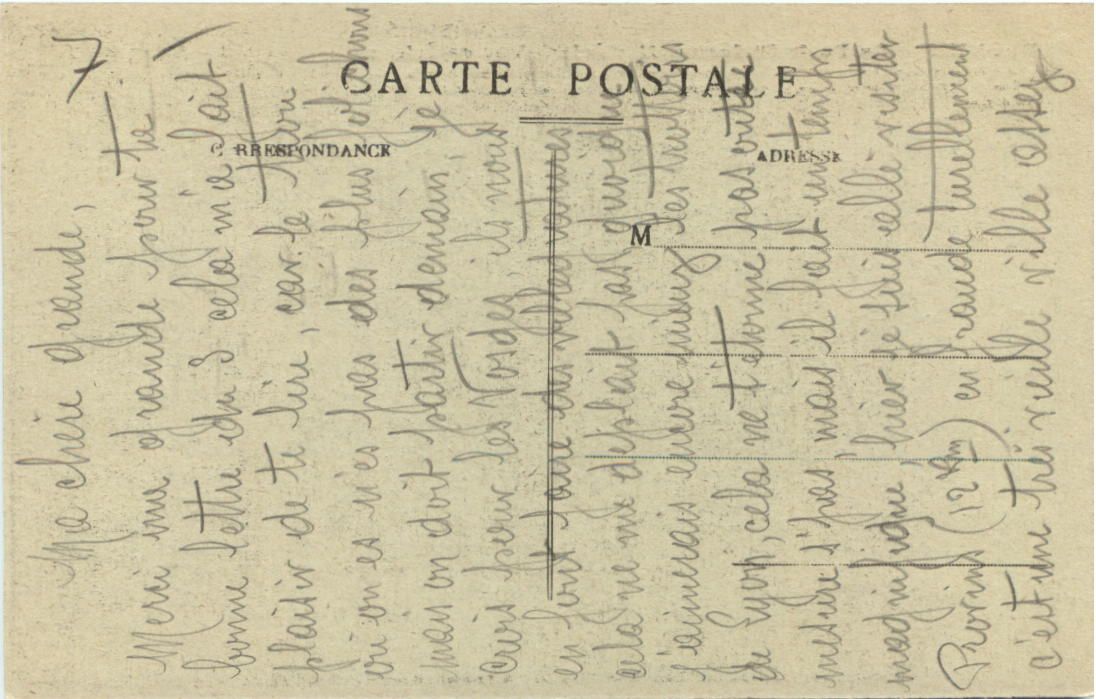 CARTE POSTALE
CORRESPONDANCE
ADRESSE
M
7
Ma chère grande,
Merci ma grande pour ta
bonne lettre du 3 cela m'a fait
plaisir de te lire, car le
ici on es n'es pas des plus
mais on doit partir demain je
crois pour les Vosges, ils nous
en font faire des
cela ne me déplait pas
j'aimerais encore mieux
de Lyon, cela ne t'étonne pas
n'est pas, mais il fait un temps
magnifique, hier je suis allé visiter
Provins (12 Km) en grande
c'est une très vieille ville assez